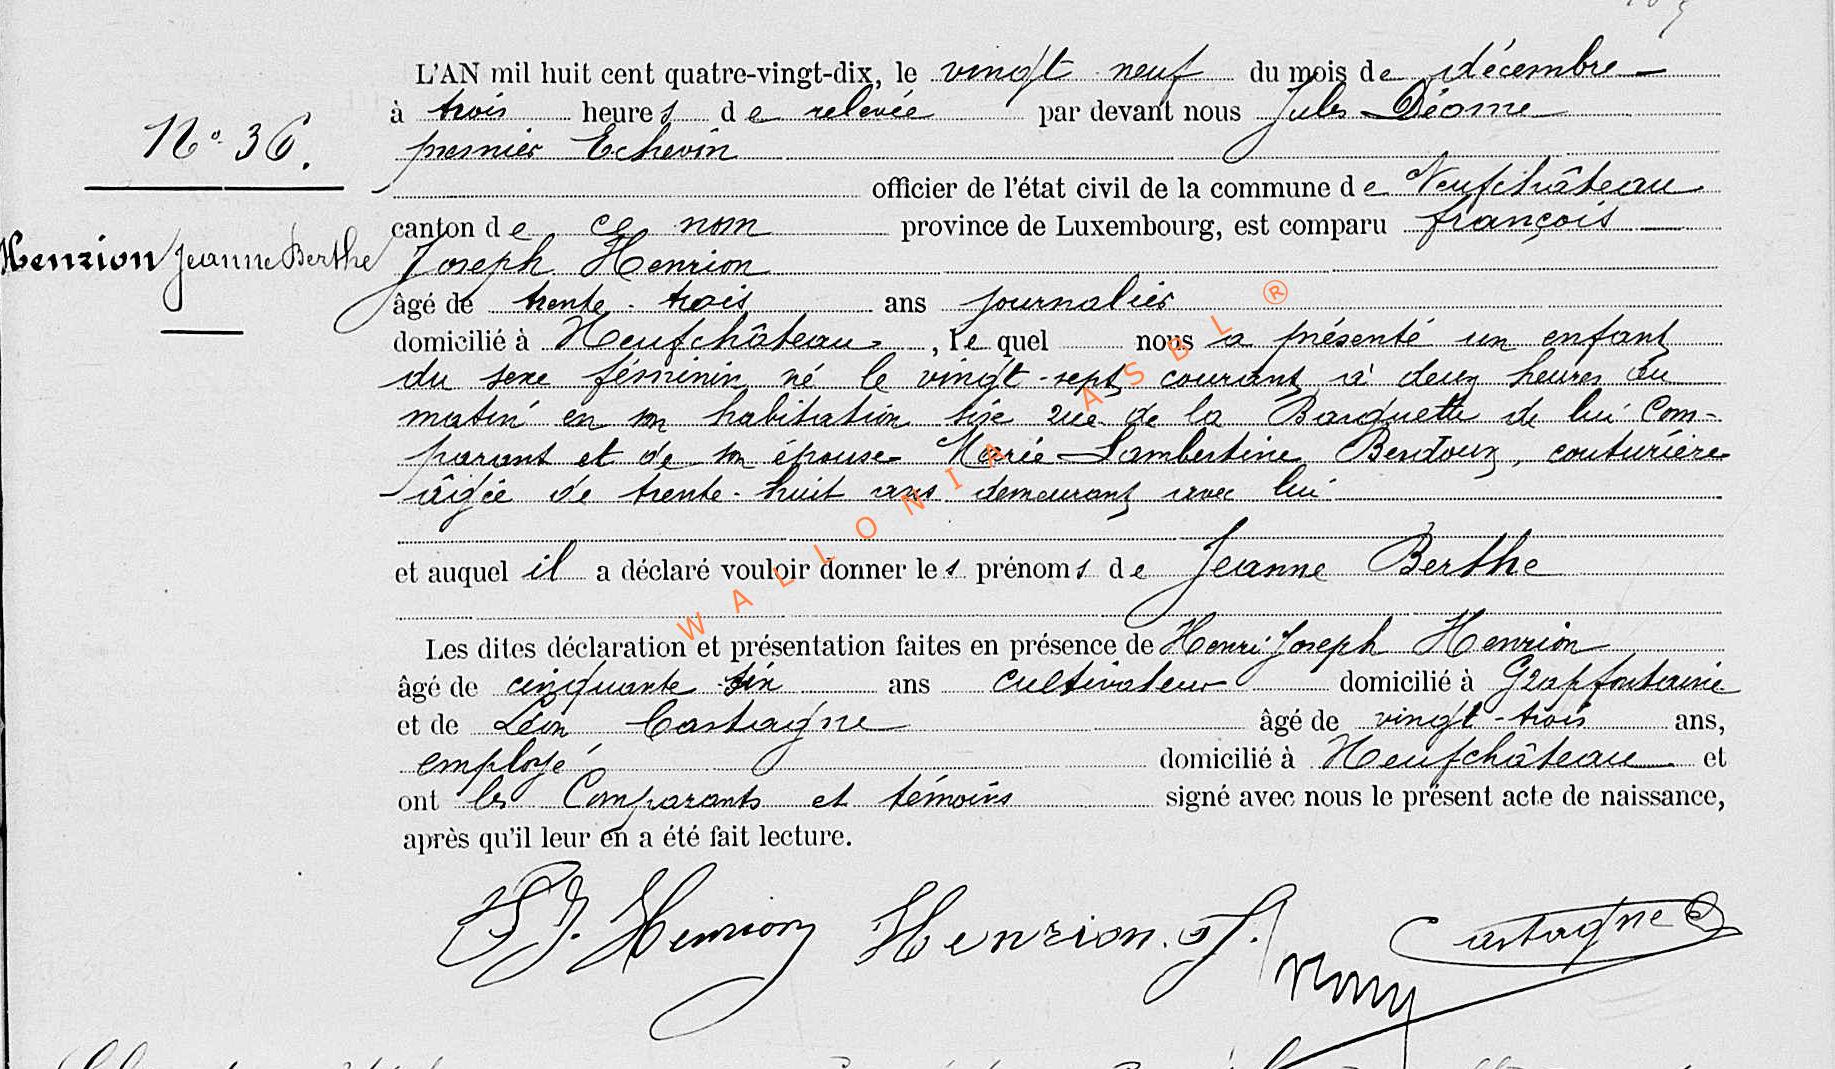 L'AN mil huit cent quatre-vingt-dix, le vingt neuf du mois de décembre
à trois heures de relevée par devant nous Jules Déome
N° 36. premier Echevin
officier de l'état civil de la commune de Neufchâteau
canton de ce nom province de Luxembourg, est comparu françois
Henrion Jeanne Berthe Joseph Henrion
âgé de trente-trois ans journalier
domicilié à Neufchâteau, le quel nous a présenté un enfant
du sexe féminin né le vingt-sept courant à deux heures du
matin en son habitation sise rue de la Barquette de lui com-
parant et de son épouse Marie Lambertine Bendoux, couturière
âgée de trente-huit ans demeurant avec lui
et auquel il a déclaré vouloir donner les prénoms de Jeanne Berthe
Les dites déclaration et présentation faites en présence de Henri Joseph Henrion
âgé de cinquante six ans cultivateur domicilié à Grapfontaine
et de Léon Castagne âgé de vingt-trois ans,
employé domicilié à Neufchâteau et
ont les Comparants et témoins signé avec nous le présent acte de naissance,
après qu'il leur en a été fait lecture.
J. Henrion Henrion. J. Castagne
WALLONIA ASBL ®